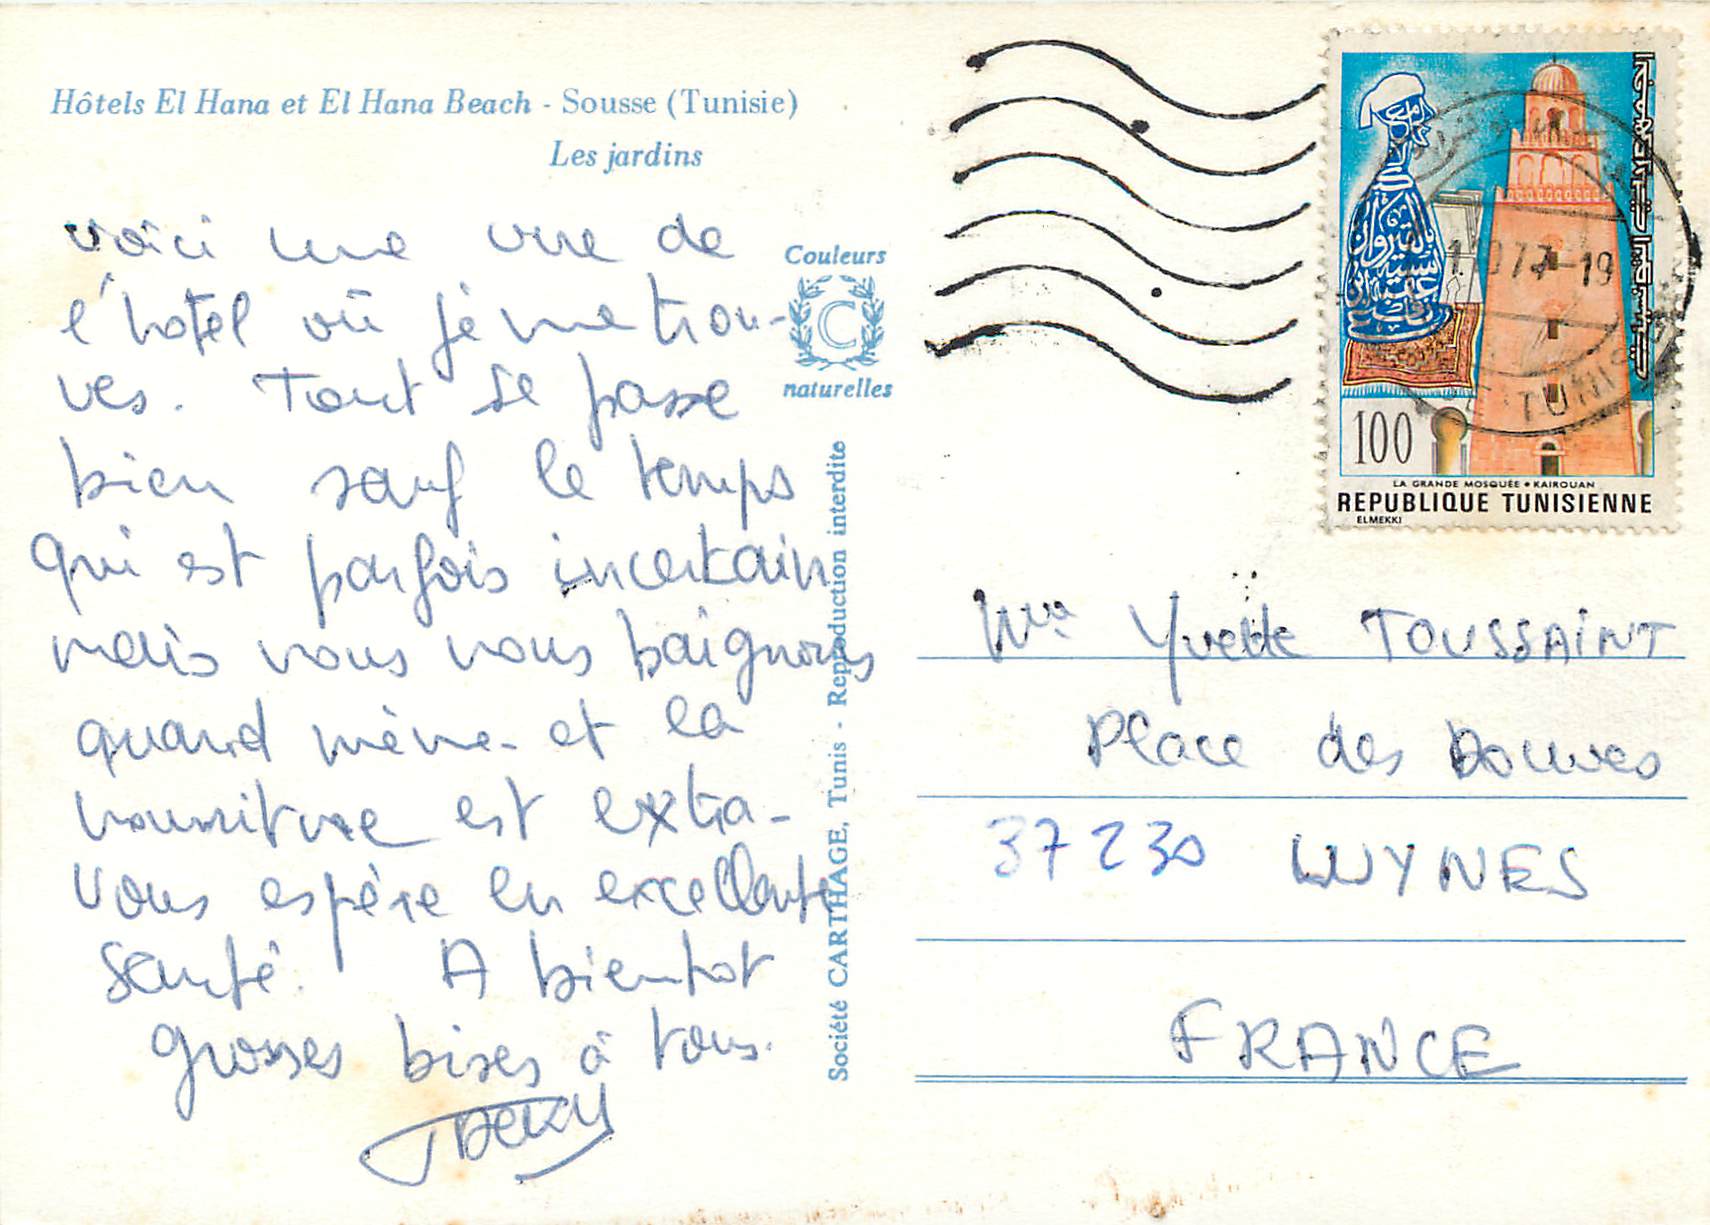 Hôtels El Hana et El Hana Beach - Sousse (Tunisie)
Les jardins
Voici une vue de
l'hotel où je me trou-
ves. Tout se passe
bien sauf le temps
qui est parfois incertain
mais nous nous baignons
quand même et la
nourriture est extra-
Vous espère en excellente
santé. A bientot
grosses bises à tous.
Couleurs
C
naturelles
Société CARTHAGE, Tunis - Reproduction interdite
الجمهورية التونسية
100
LA GRANDE MOSQUÉE • KAIROUAN
REPUBLIQUE TUNISIENNE
ELMEKKI
Yvette TOUSSAINT
Place des Douves
37230 LUYNES
FRANCE